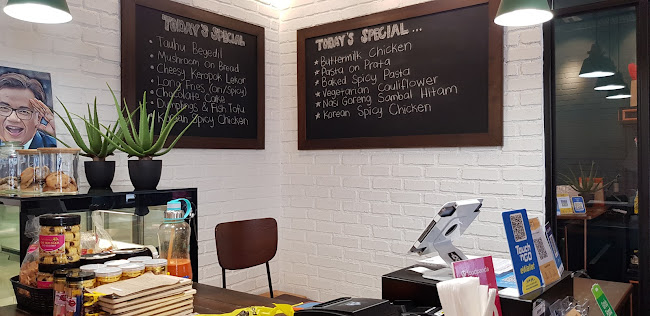 Today's Special
• Tauhu Begedil
• Mushroom on Bread
• Cheesy Keropok Lekor
• Long Fries (ori/spicy)
• Chocolate Cake
• Dumplings & Fish Tofu
• Korean Spicy Chicken
Today's Special ...
* Buttermilk Chicken
* Pasta on Prata
* Baked Spicy Pasta
* Vegetarian Cauliflower
* Nasi Goreng Sambal Hitam
* Korean Spicy Chicken
Touch
'n GO
eWallet
foodpanda